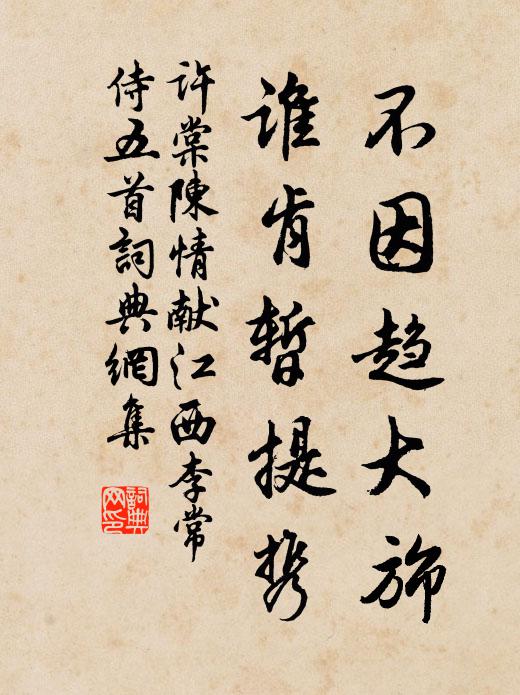 不因趋大旆
谁肯暂提携
许棠陳情献江西李常
侍五首詞典網集
詞典网印